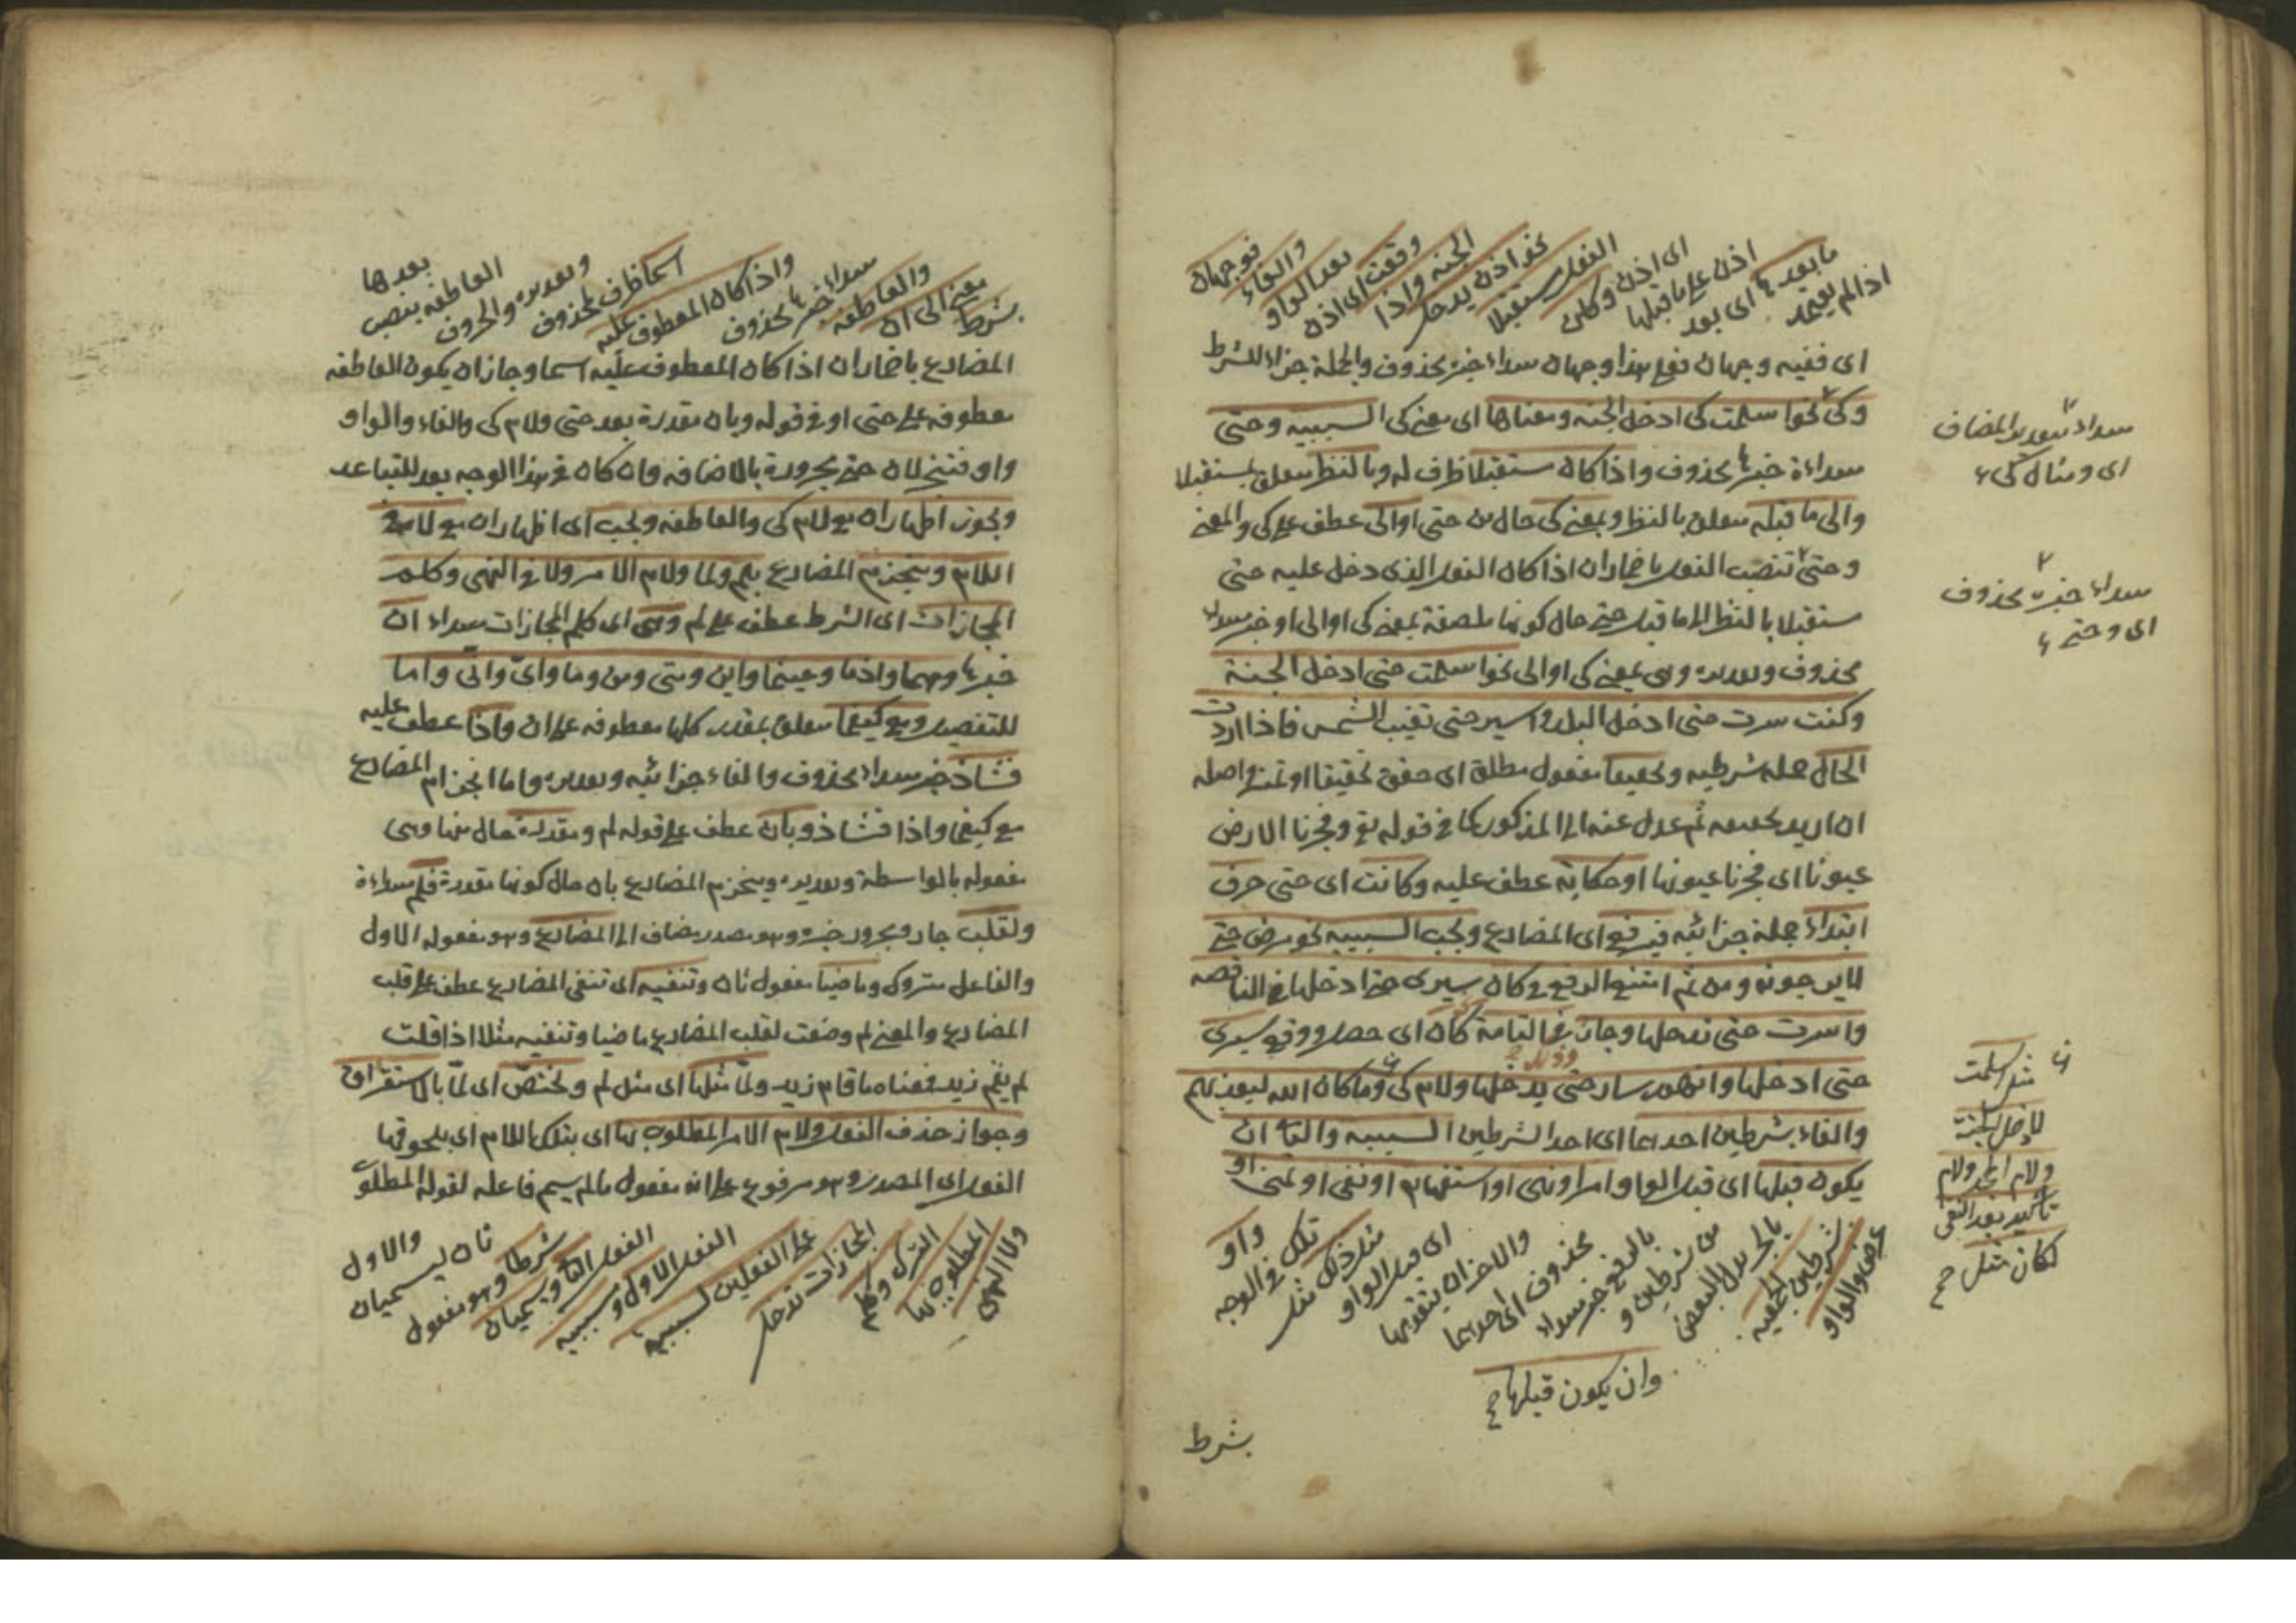 اذا لم يعتمد
ما بعدها اى بعد
اذن على ما قبلها
اى اذن وكان
الفعل مستقبلا
نحو اذن تدخل
الجنة واذا
وقعت اى اذن
بعد الواو
والفاء
فوجهان
اى ففيه وجهان فعلى هذا وجهان مبتداء خبره محذوف والجملة جزاء للشرط
وكى نحو اسلمت كى ادخل الجنة ومعناها اى معنى كى السببية وحتى
مبتداءة خبرها محذوف واذا كان مستقبلا ظرف له وبالنظر متعلق بمستقبلا
والى ما قبله متعلق بالنظر وبمعنى كى حال من حتى او الى عطف على كى والمعنى
وحتى تنصب الفعل باضمار ان اذا كان الفعل الذى دخل عليه حتى
مستقبلا بالنظر الى ما قبل حتى حال كونها ملصقة بمعنى كى او الى او خبر مبتداء
محذوف وتقديره وهى بمعنى كى او الى نحو اسلمت حتى ادخل الجنة
وكنت سرت حتى ادخل البلد واسير حتى تغيب الشمس فاذا اردت
الحال جملة شرطية وتحقيقا مفعول مطلق اى حقق تحقيقا او تمييز واصله
ان اريد تحقيقه ثم عدل عنه الى المذكور كما فى قوله تع وفجرنا الارض
عيونا اى فجرنا عيونها او حكاية عطف عليه وكانت اى حتى حرف
ابتداء جملة جزائية فيرفع اى المضارع وتجب السببية نحو مرض حتى
لا يرجونه ومن ثم امتنع الرفع فى كان سيرى حتى ادخلها فى الناقصة
واسرت حتى تدخلها وجاز فى التامة كان اى حصل ووقع سيرى
حتى ادخلها وايهم سار حتى يدخلها ولام كى وما كان الله ليعذبهم
والفاء بشرطين احدهما اى احد الشرطين السببية والثانى ان
يكون قبلها اى قبل الواو امر او نهى او استفهام او نفى او تمنى او
عرض والواو
بشرطين الجمعية
بالجر بدل البعض
من شرطين و
بالرفع خبر مبتداء
محذوف اى احدهما
والاخر ان يتقدمها
اى قبل الواو
مثل ذلك مثل
تلك فى الوجه
واو
وان يكون قبلها صح
بشرط
مبتداء بتقدير المضاف
اى ومثال كى
مبتداء خبره محذوف
اى وحتى
مثل اسلمت
لادخل الجنة
ولام الجحد ولام
تأكيد بعد النفى
لكان مثل صح
بشرط
معنى الى ان
والعاطفة
مبتداء خبرها محذوف
واذا كان المعطوف عليه
اسما ظرف لمحذوف
وتقديره والحروف
العاطفة ينصب
بعدها
المضارع باضمار ان اذا كان المعطوف عليه اسما وجاز ان يكون العاطفة
معطوفة على حتى او فى قوله وبان مقدرة بعد حتى ولام كى والفاء والواو
واو فتنخ لان حتى مجرورة بالاضافة وان كان فى هذا الوجه بعد للتباعد
ويجوز اظهار ان مع لام كى والعاطفة ويجب اى اظهار ان مع لا فى
اللام وينجزم المضارع بلم ولما ولام الامر ولا فى النهى وكلم
المجازات اى الشرط عطف على لم وهى اى كلم المجازات مبتداء ان
خبرها ومهما واذما وحيثما واين ومتى ومن وما واى وانى واما
للتفصيل ومع كيفما متعلق بمقدر كلها معطوفة على ان واذا عطف عليه
فشاذ خبر مبتداء محذوف والفاء جزائية وتقديره واما انجزام المضارع
مع كيفما واذا فشاذ وبان عطف على قوله لم ومقدرة حال منها وهى
مفعوله بالواسطة وتقديره وينجزم المضارع بان حال كونها مقدرة فلم مبتداءة
ولقلب جار ومجرور خبره وهو مصدر مضاف الى المضارع وهو مفعوله الاول
والفاعل متروك وماضيا مفعول ثان وتنفيه اى تنفى المضارع عطف على قلب
المضارع والمعنى لم وضعت لقلب المضارع ماضيا وتنفيه مثلا اذا قلت
لم يقم زيد فمعناه ما قام زيد ولما مثلها اى مثل لم وتختص اى لما بالاستغراق
وجواز حذف الفعل ولام الامر المطلوب بها اى بتلك اللام اى بلحوقها
الفعل اى المصدر وهو مرفوع على انه مفعول ما لم يسم فاعله لقوله المطلوب
ولا النهى
المطلوب بها
الترك وكلم
المجازات تدخل
على الفعلين لسببية
الفعل الاول ومسببية
الفعل الثانى ويسميان
شرطا وهو مفعول
ثان ليسميان
والاول